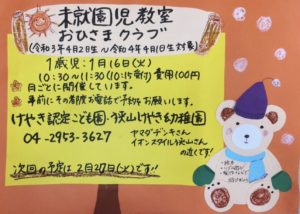 未就園児教室
おひさまクラブ
(令和3年4月2日生～令和4年4月1日生対象)
1歳児:1月16日(火)
10:30～11:30(10:15受付)費用100円
月ごとに開催しています。
事前にその都度お電話で予約をお願いします。
けやき認定こども園・狭山けやき幼稚園
04-2953-3627
ヤマダデンキさん
イオンスタイル狭山さん
の近くです!
次回の予定は2月27日(火)です!!